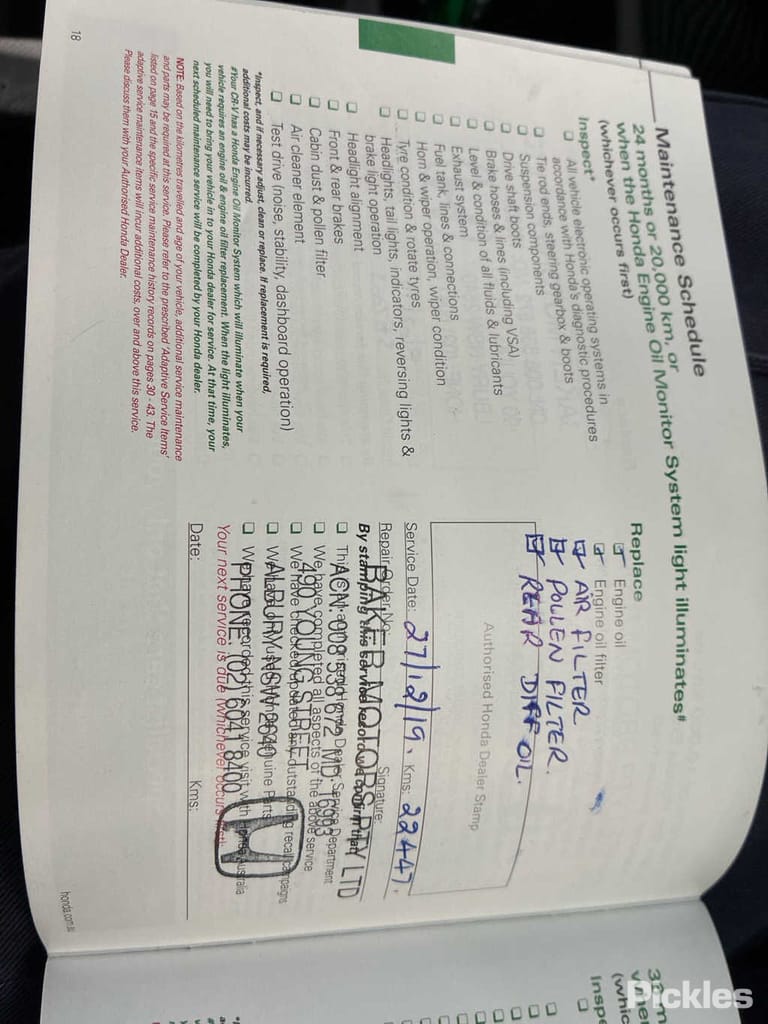 Maintenance Schedule
24 months or 20,000 km, or
when the Honda Engine Oil Monitor System light illuminates#
(whichever occurs first)
Inspect*
All vehicle electronic operating systems in
accordance with Honda's diagnostic procedures
Tie rod ends, steering gearbox & boots
Suspension components
Drive shaft boots
Brake hoses & lines (including VSA)
Level & condition of all fluids & lubricants
Exhaust system
Fuel tank, lines & connections
Horn & wiper operation, wiper condition
Tyre condition & rotate tyres
Headlights, tail lights, indicators, reversing lights &
brake light operation
Headlight alignment
Front & rear brakes
Cabin dust & pollen filter
Air cleaner element
Test drive (noise, stability, dashboard operation)
*Inspect, and if necessary adjust, clean or replace. If replacement is required,
additional costs may be incurred.
#Your CR-V has a Honda Engine Oil Monitor System which will illuminate when your
vehicle requires an engine oil & engine oil filter replacement. When the light illuminates,
you will need to bring your vehicle in to your Honda dealer for service. At that time, your
next scheduled maintenance service will be completed by your Honda dealer.
NOTE: Based on the kilometres travelled and age of your vehicle, additional service maintenance
and parts may be required at this service. Please refer to the prescribed 'Adaptive Service Items'
listed on page 15 and the specific service maintenance history records on pages 30 - 43. The
adaptive service maintenance items will incur additional costs, over and above this service.
Please discuss them with your Authorised Honda Dealer.
18
Replace
Engine oil
Engine oil filter
AIR FILTER
POLLEN FILTER.
REAR DIFF OIL.
Authorised Honda Dealer Stamp
Service Date: 27/12/19. Kms: 22447.
Repair Order No. Signature:
By stamping this service record we confirm that
BAKER MOTORS PTY LTD
This is an authorised Honda Dealer Service Department
ACN. 008 538 672 MD. 16003
We have completed all aspects of the above service
490 YOUNG STREET
We have checked/updated any outstanding recall campaigns
ALBURY NSW 2640
We have used Honda Genuine Parts
PHONE: (02) 6041 8400
We have recorded this service visit with Honda Australia
Your next service is due (whichever occurs first)
Date: Kms:
honda.com.au
(whic
Inspe
Pickles